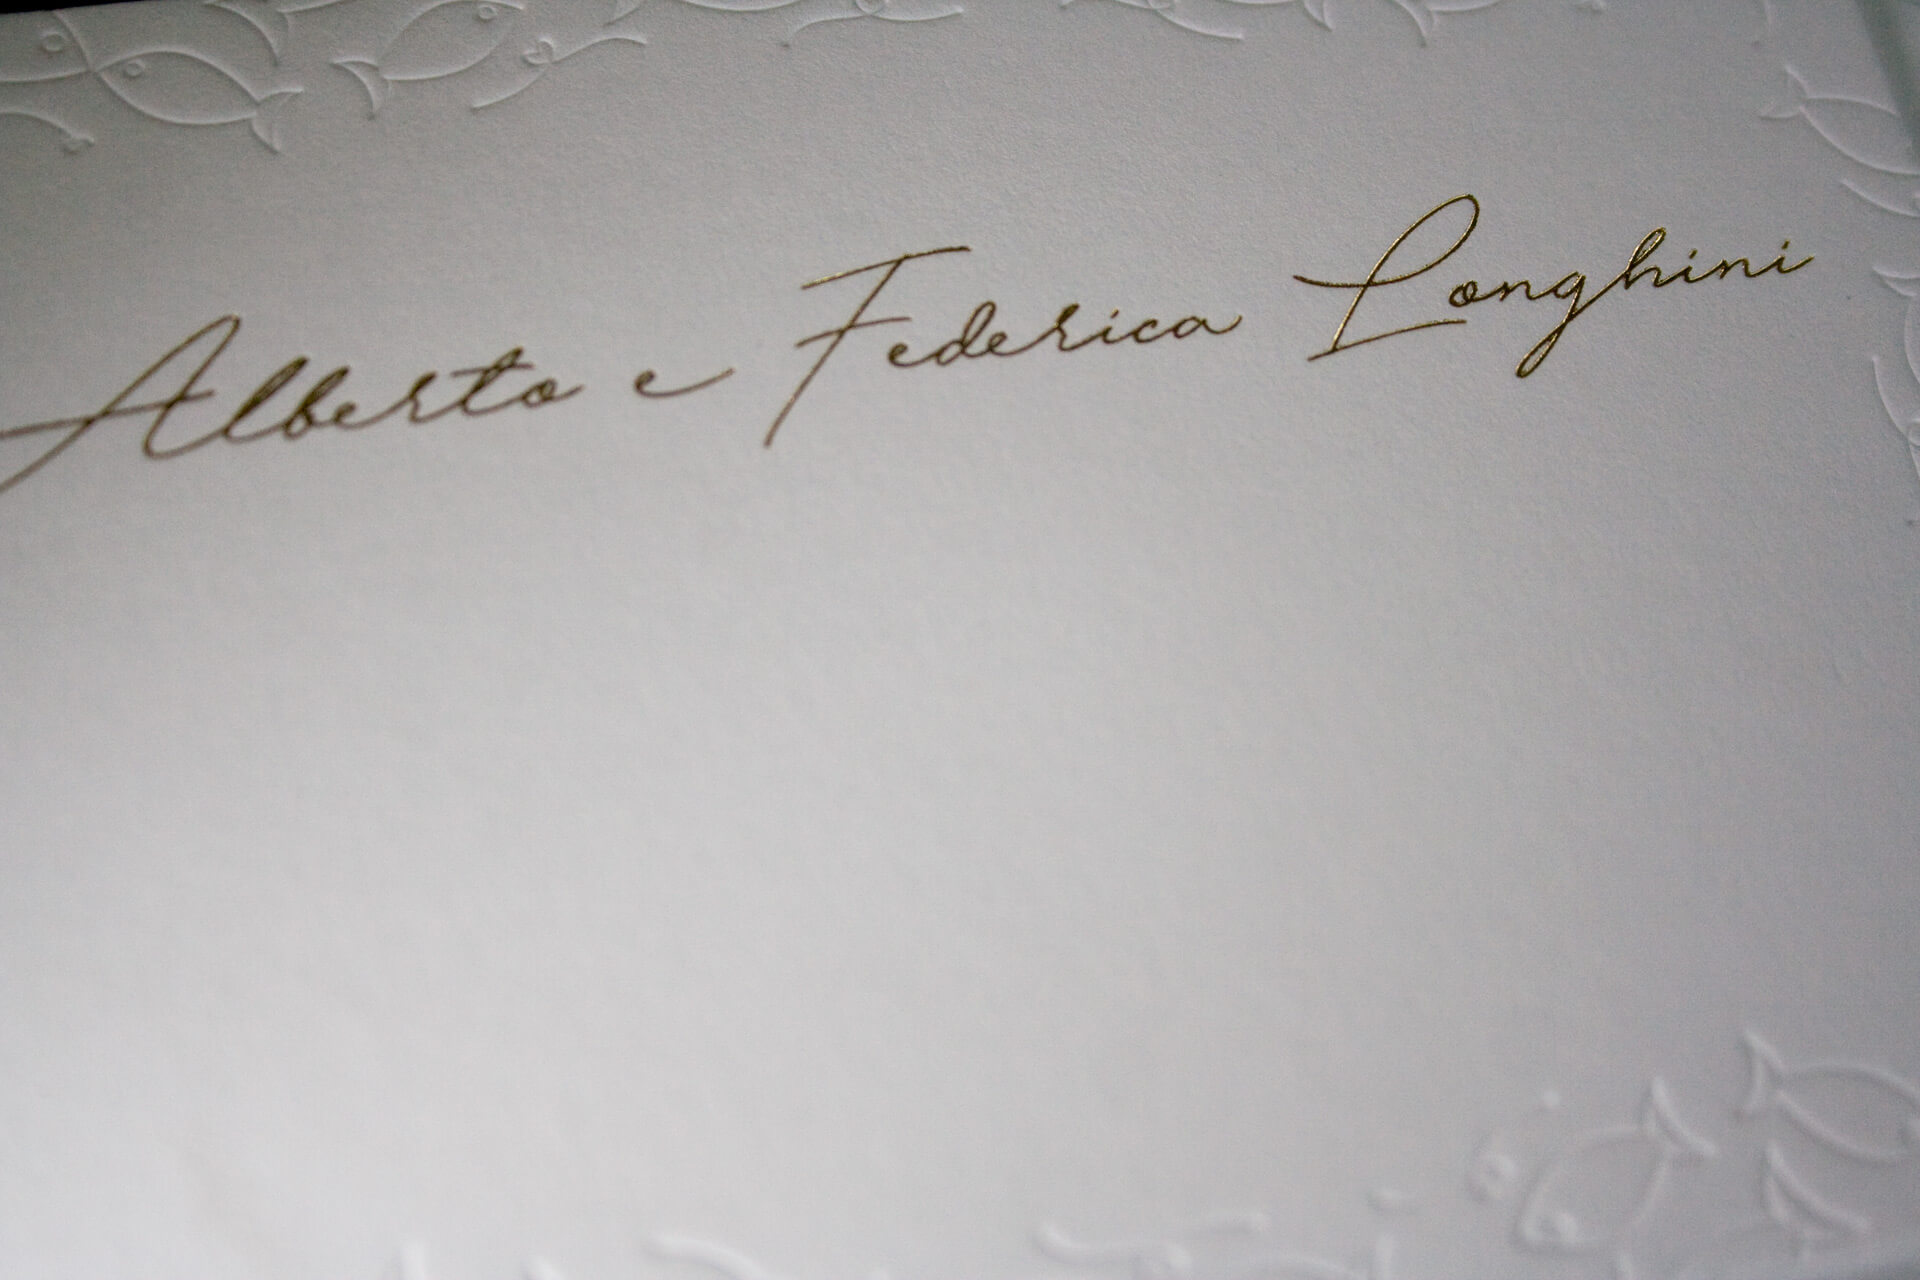 Alberto e Federica Longhini